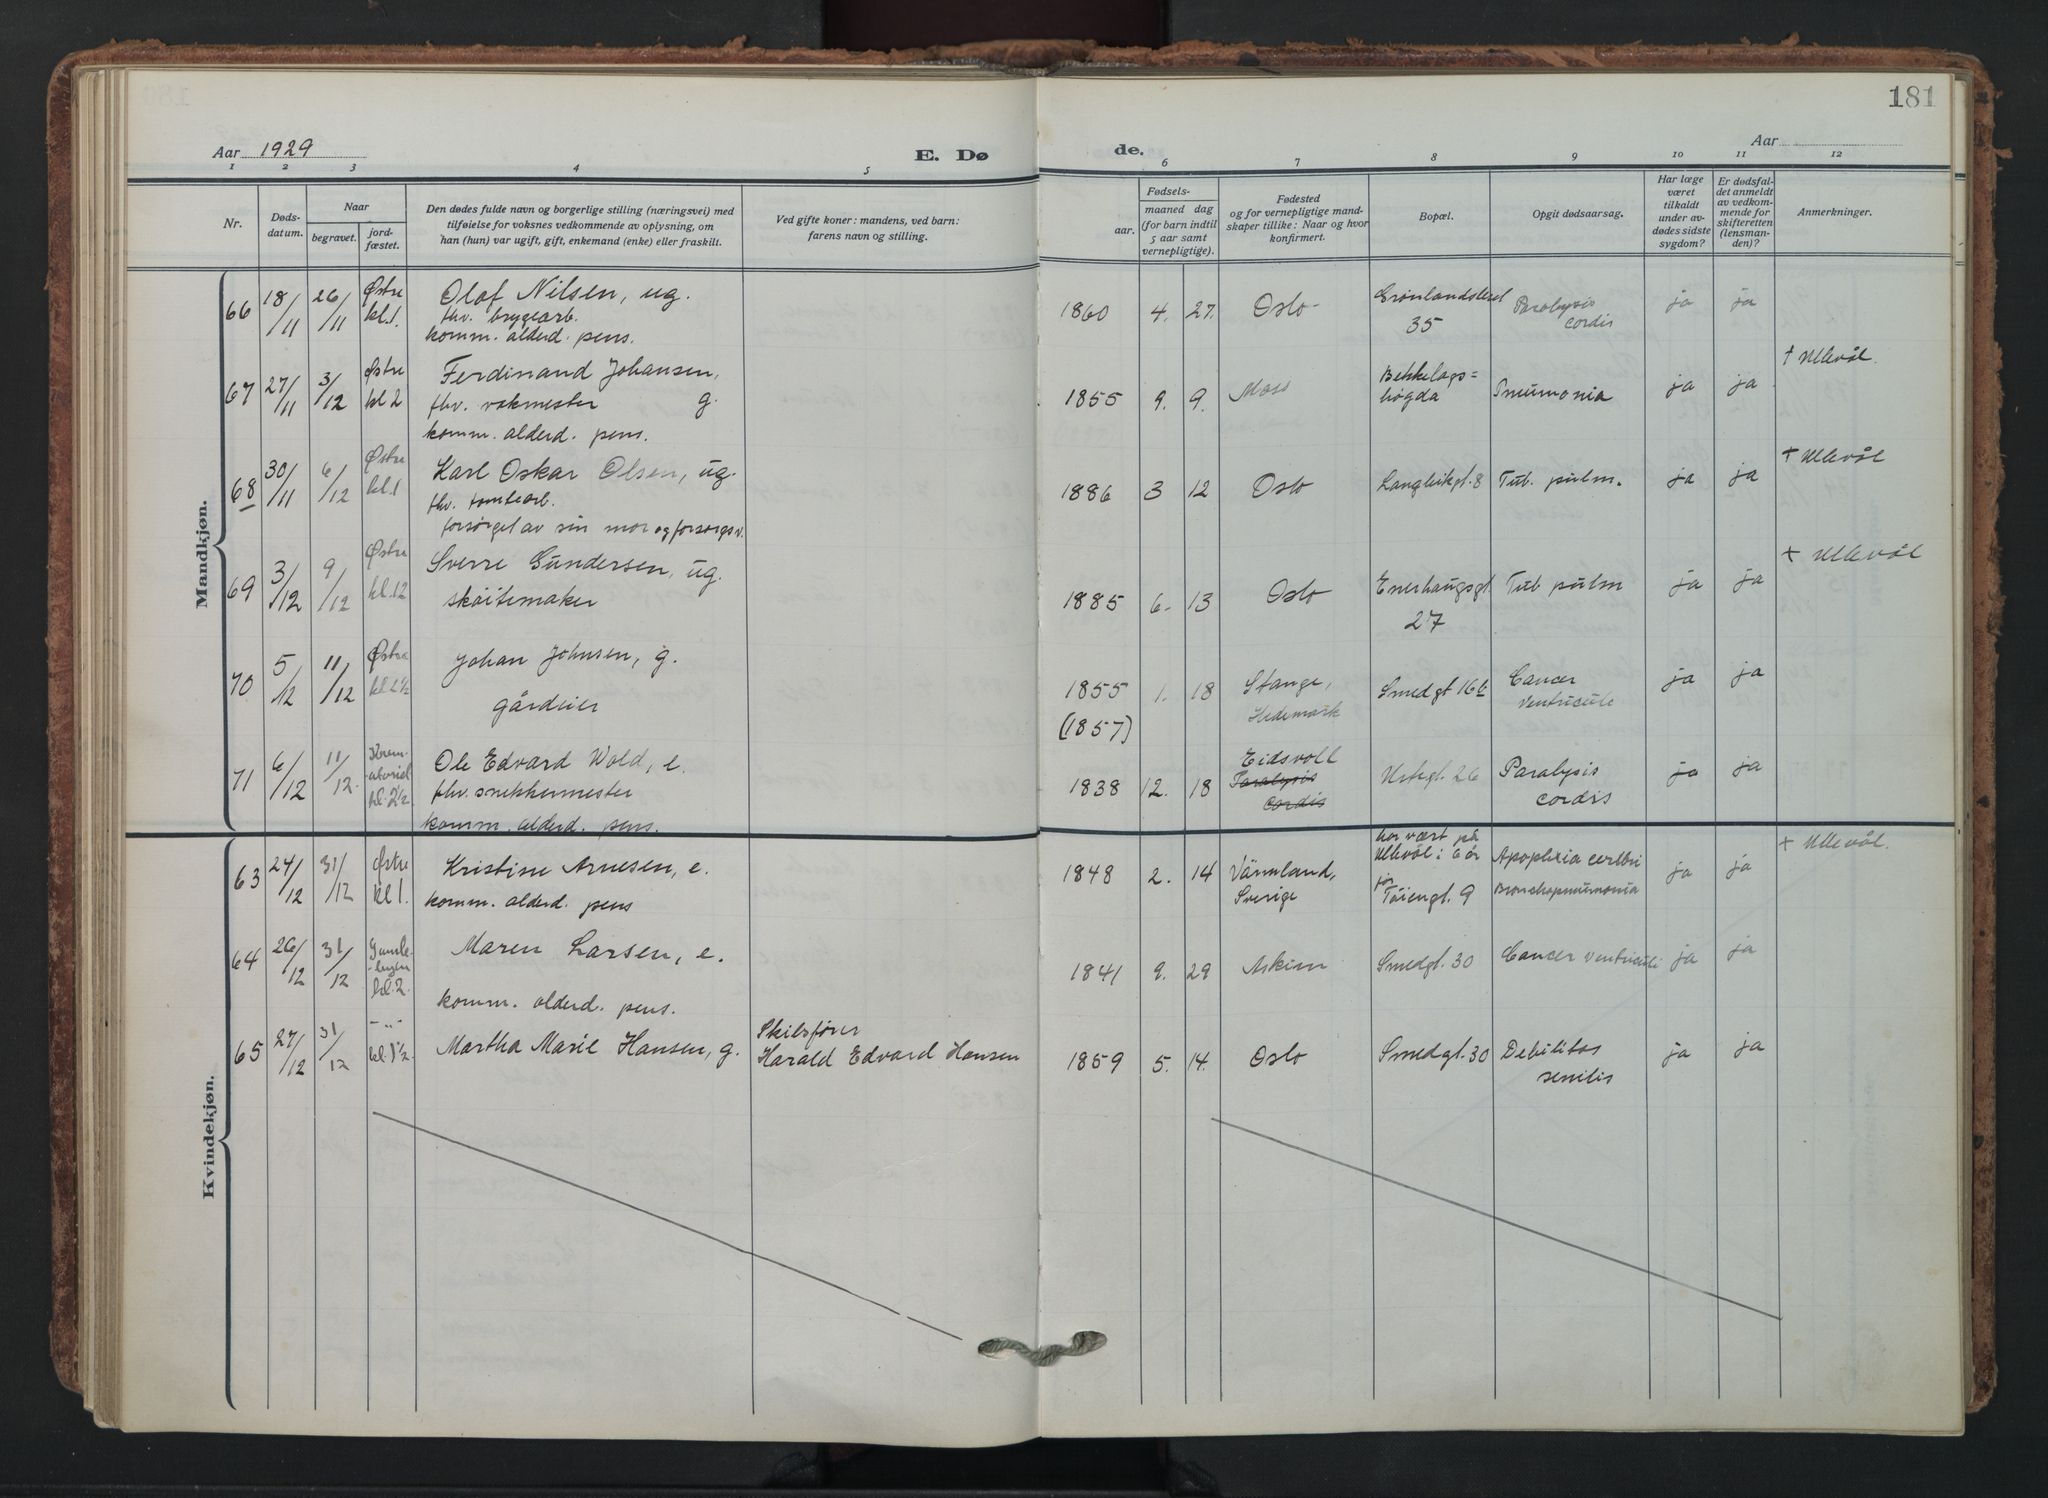 181
Aar 1929
E. Dø
de.
Aar
1 2 3 4 5 6 7 8 9 10 11 12
Nr.
Døds-
datum.
Naar
begravet.
jord-
fæstet.
Den dødes fulde navn og borgerlige stilling (næringsvei) med
tilføielse for voksnes vedkommende av oplysning, om
han (hun) var ugift, gift, enkemand (enke) eller fraskilt.
Ved gifte koner: mandens, ved barn:
farens navn og stilling.
Fødsels-
aar.
maaned dag
(for barn indtil
5 aar samt
vernepligtige).
Fødested
og for vernepligtige mand-
skaper tillike: Naar og hvor
konfirmert.
Bopæl.
Opgit dødsaarsag.
Har læge
været
tilkaldt
under av-
dødes sidste
sygdom?
Er dødsfal-
det anmeldt
av vedkom-
mende for
skifteretten
(lensman-
den)?
Anmerkninger.
Mandkjøn.
66 18/11 26/11 Østre kl.1. Olaf Nilsen, ug. 1860 4. 27. Oslo Grønlandsleret 35 Paralysis cordis ja ja
fhv. bryggearb.
komm. alderd. pens.
67 27/11 3/12 Østre kl 2 Ferdinand Johansen, g. 1855 9. 9. Moss Bekkelags= høgda Pneumonia ja ja † Ullevål.
fhv. vakmester
komm. alderd. pens.
68 30/11 6/12 Østre kl.1 Karl Oskar Olsen, ug. 1886 3 12 Oslo Langleikgt. 8 Tub. pulm. ja ja † Ullevål
fhv. tomtearb.
forsørget av sin mor og forsorgsv.
69 3/12 9/12 Østre kl.12 Sverre Gundersen, ug. 1885 6. 13 Oslo Enerhaugsgt. 27 Tub pulm ja ja † Ullevål
skøitemaker
70 5/12 11/12 Østre kl 2½ Johan Johnsen, g. 1855 (1857) 1. 18 Stange, Hedemark Smedgt 16b Cancer ventriculi ja ja
gårdeier
71 6/12 11/12. Krematoriet kl. 2½ Ole Edvard Wold, e. 1838 12. 18 Eidsvoll Paralysis cordis Urtegt. 26 Paralysis cordis ja ja
fhv. snekkermester
komm. alderd. pens.
Kvindekjøn.
63 24/12 31/12 Østre kl 1. Kristine Arnesen, e. 1848 2. 14 Värmland, Sverige har vært på Ullevål i 6 år før Tøiengt. 9 Apoplexia cerebri Bronchopneumonia ja ja † Ullevål.
komm. alderd. pens
64 26/12 31/12 Gamle-byen kl. 2. Maren Larsen, e. 1841 9. 29 Askim Smedgt. 30 Cancer ventriculi ja ja
komm. alderd. pens.
65 27/12 31/12 -"- kl. 1½ Martha Marie Hansen, g. Skibsfører Harald Edvard Hansen 1859 5. 14. Oslo Smedgt. 30 Debilitas senilis ja ja